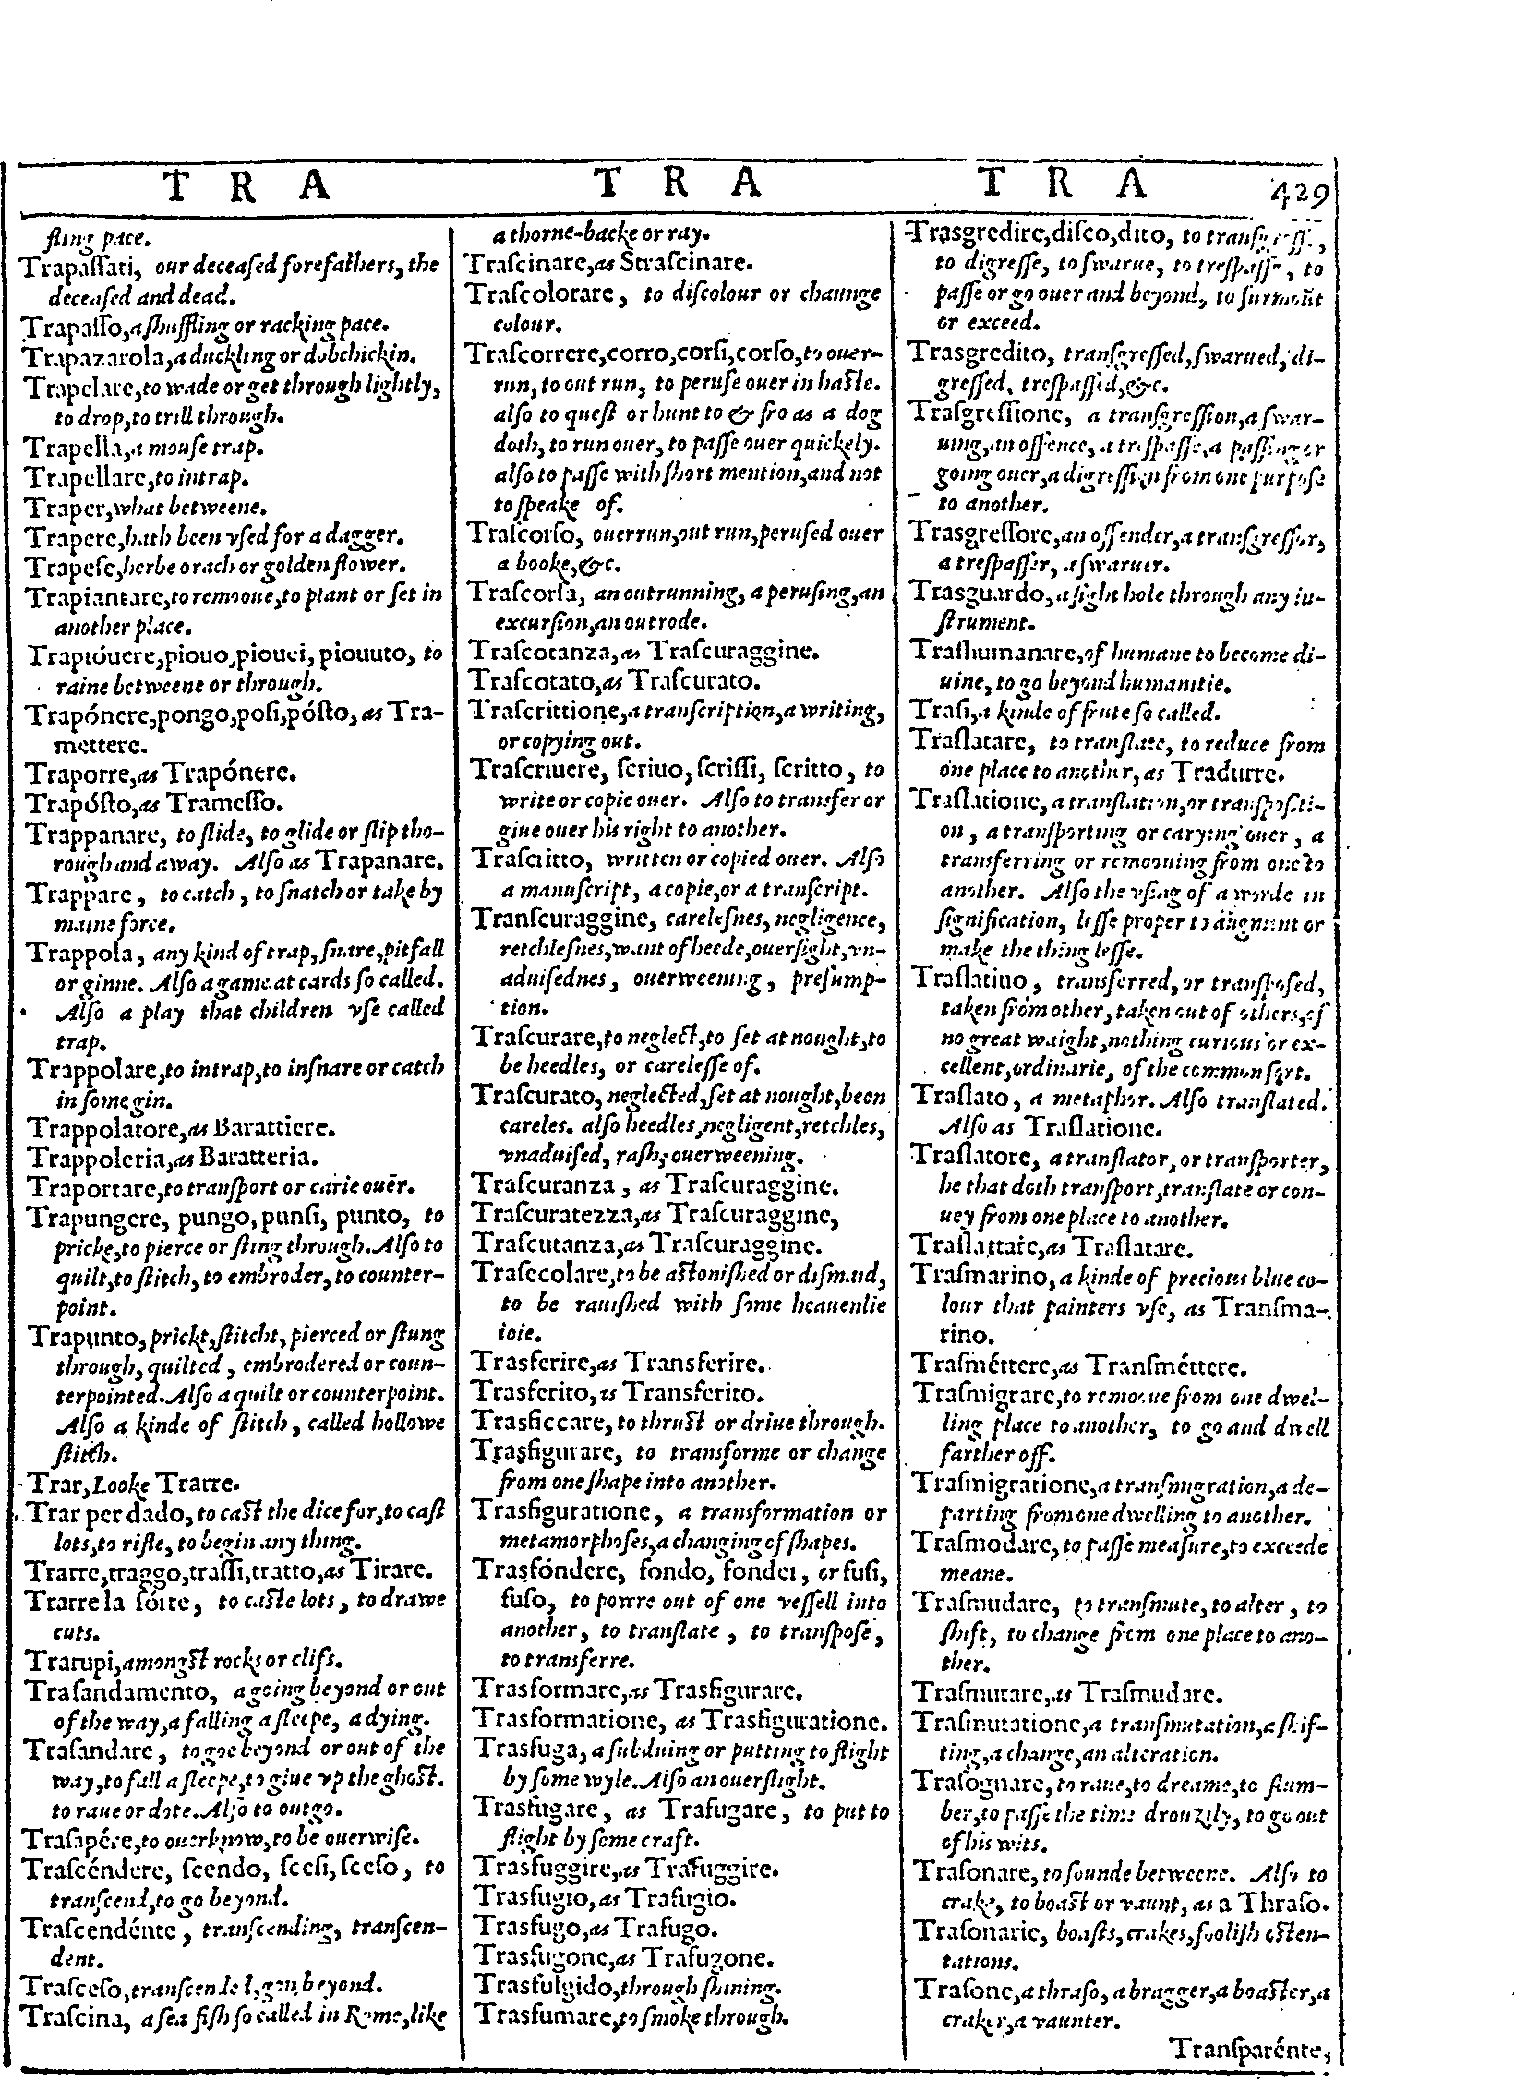 TRA TRA TRA 429
ſling pace.
Trapaſſati, our deceaſed forefathers, the
deceaſed and dead.
Trapaſſo, a ſhuffling or racking pace.
Trapazarola, a duckling or dobchickin.
Trapelare, to wade or get through lightly,
to drop, to trill through.
Trapella, a mouſe trap.
Trapellare, to intrap.
Traper, what betweene.
Trapere, hath been vſed for a dagger.
Trapeſe, herbe orach or golden flower.
Trapiantare, to remooue, to plant or ſet in
another place.
Trapióuere, piouo, piouei, piouuto, to
raine betweene or through.
Trapónere, pongo, poſi, póſto, as Tra-
mettere.
Traporre, as Trapónere.
Trapóſto, as Trameſſo.
Trappanare, to ſlide, to glide or ſlip tho-
rough and away. Alſo as Trapanare.
Trappare, to catch, to ſnatch or take by
maine force.
Trappola, any kind of trap, ſnare, pitfall
or ginne. Alſo a game at cards ſo called.
Alſo a play that children vſe called
trap.
Trappolare, to intrap, to inſnare or catch
in ſome gin.
Trappolatore, as Barattiere.
Trappoleria, as Baratteria.
Traportare, to tranſport or carie ouer.
Trapungere, pungo, punſi, punto, to
pricke, to pierce or ſting through. Alſo to
quilt, to ſtitch, to embroder, to counter-
point.
Trapunto, prickt, ſtitcht, pierced or ſtung
through, quilted, embrodered or coun-
terpointed. Alſo a quilt or counterpoint.
Alſo a kinde of ſtitch, called hollowe
ſtitch.
Trar, Looke Trarre.
Trar per dado, to caſt the dice for, to caſt
lots, to rifle, to begin any thing.
Trarre, traggo, traſſi, tratto, as Tirare.
Trarre la ſórte, to caſte lots, to drawe
cuts.
Trarupi, amongſt rocks or clifs.
Traſandamento, a going beyond or out
of the way, a falling a ſleepe, a dying.
Traſandare, to goe beyond or out of the
way, to fall a ſleepe, to giue vp the ghoſt.
to raue or dote. Alſo to outgo.
Traſapére, to ouerknow, to be ouerwiſe.
Traſcéndere, ſcendo, ſceſi, ſceſo, to
tranſcend, to go beyond.
Traſcendénte, tranſcending, tranſcen-
dent.
Traſceſo, tranſcended, gon beyond.
Traſcina, a ſea fiſh ſo called in Rome, like
a thorne-backe or ray.
Traſcinare, as Straſcinare.
Traſcolorare, to diſcolour or chaunge
colour.
Traſcorrere, corro, corſi, corſo, to ouer-
run, to out run, to peruſe ouer in haſte.
alſo to queſt or hunt to & fro as a dog
doth, to run ouer, to paſſe ouer quickely.
alſo to paſſe with ſhort mention, and not
to ſpeake of.
Traſcorſo, ouerrun, out run, peruſed ouer
a booke, &c.
Traſcorſa, an outrunning, a peruſing, an
excurſion, an outrode.
Traſcotanza, as Traſcuraggine.
Traſcotato, as Traſcurato.
Traſcrittione, a tranſcription, a writing,
or copying out.
Traſcriuere, ſcriuo, ſcriſſi, ſcritto, to
write or copie ouer. Alſo to transfer or
giue ouer his right to another.
Traſcritto, written or copied ouer. Alſo
a manuſcript, a copie, or a tranſcript.
Tranſcuraggine, careleſnes, negligence,
retchleſnes, want of heede, ouerſight, vn-
aduiſednes, ouerweening, preſump-
tion.
Traſcurare, to neglect, to ſet at nought, to
be heedles, or careleſſe of.
Traſcurato, neglected, ſet at nought, been
careles. alſo heedles, negligent, retchles,
vnaduiſed, raſh, ouerweening.
Traſcuranza, as Traſcuraggine.
Traſcuratezza, as Traſcuraggine,
Traſcutanza, as Traſcuraggine.
Traſecolare, to be aſtoniſhed or diſmaid,
to be rauiſhed with ſome heauenlie
ioie.
Trasferire, as Transferire.
Trasferito, as Transferito.
Trasficcare, to thruſt or driue through.
Trasfigurare, to transforme or change
from one ſhape into another.
Trasfiguratione, a transformation or
metamorphoſes, a changing of ſhapes.
Trasfóndere, fondo, fondei, or fuſi,
fuſo, to powre out of one veſſell into
another, to tranſlate, to tranſpoſe,
to transferre.
Trasformare, as Trasfigurare.
Trasformatione, as Trasfiguratione.
Trasfuga, a ſubduing or putting to flight
by ſome wyle. Alſo an ouerflight.
Trasfugare, as Trafugare, to put to
flight by ſome craft.
Trasfuggire, as Trafuggire.
Trasfugio, as Trafugio.
Trasfugo, as Trafugo.
Trasfugone, as Trafugone.
Trasfulgido, through ſhining.
Trasfumare, to ſmoke through.
Trasgredire, diſco, dito, to
to digreſſe, to ſwarue, to treſpaſſe, to
paſſe or go ouer and beyond, to ſurmoūt
or exceed.
Trasgredito, tranſgreſſed, ſwarued, di-
greſſed, treſpaſſed, &c.
Traſgreſſione, a tranſgreſſion, a ſwar-
uing, an offence, a treſpaſſe, a paſſing or
going ouer, a digreſſion from one purpoſe
to another.
Trasgreſſore, an offender, a tranſgreſſor,
a treſpaſſer, a ſwaruer.
Trasguardo, a ſight hole through any in-
ſtrument.
Traſhumanare, of humane to become di-
uine, to go beyond humanitie.
Traſi, a kinde of frute ſo called.
Traſlatare, to tranſlate, to reduce from
one place to another, as Tradurre.
Traſlatione, a tranſlation, or tranſpoſiti-
on, a tranſporting or carying ouer, a
transferring or remoouing from one to
another. Alſo the vſing of a worde in
ſignification, leſſe proper to augment or
make the thing leſſe.
Traſlatiuo, transferred, or tranſpoſed,
taken from other, taken out of others, of
no great waight, nothing curious or ex-
cellent, ordinarie, of the common ſort.
Traſlato, a metaphor. Alſo tranſlated.
Alſo as Traſlatione.
Traſlatore, a tranſlator, or tranſporter,
he that doth tranſport, tranſlate or con-
uey from one place to another.
Traſlattare, as Traſlatare.
Traſmarino, a kinde of precious blue co-
lour that painters vſe, as Tranſma-
rino.
Traſméttere, as Tranſméttere.
Traſmigrare, to remoue from one dwel-
ling place to another, to go and dwell
farther off.
Traſmigratione, a tranſmigration, a de-
parting from one dwelling to another.
Traſmodare, to paſſe meaſure, to exceede
meane.
Traſmudare, to tranſmute, to alter, to
ſhift, to change from one place to ano-
ther.
Traſmutare, as Traſmudare.
Traſmutatione, a tranſmutation, a ſhif-
ting, a change, an alteration.
Traſognare, to raue, to dreame, to ſlum-
ber, to paſſe the time drouzily, to go out
of his wits.
Traſonare, to ſounde betweene. Alſo to
crake, to boaſt or vaunt, as a Thraſo.
Traſonarie, boaſts, crakes, fooliſh oſten-
tations.
Traſone, a thraſo, a bragger, a boaſter, a
craker, a vaunter.
Tranſparénte,